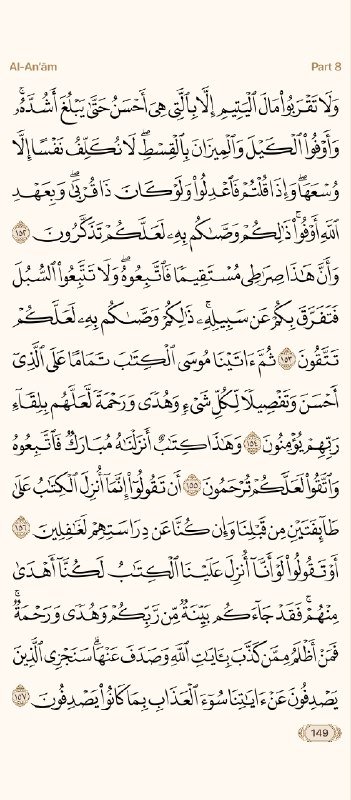 Al-An'ām Part 8
وَلَا تَقْرَبُوا۟ مَالَ ٱلْيَتِيمِ إِلَّا بِٱلَّتِى هِىَ أَحْسَنُ حَتَّىٰ يَبْلُغَ أَشُدَّهُۥ ۖ
وَأَوْفُوا۟ ٱلْكَيْلَ وَٱلْمِيزَانَ بِٱلْقِسْطِ ۖ لَا نُكَلِّفُ نَفْسًا إِلَّا
وُسْعَهَا ۖ وَإِذَا قُلْتُمْ فَٱعْدِلُوا۟ وَلَوْ كَانَ ذَا قُرْبَىٰ ۖ وَبِعَهْدِ
ٱللَّهِ أَوْفُوا۟ ۚ ذَٰلِكُمْ وَصَّىٰكُم بِهِۦ لَعَلَّكُمْ تَذَكَّرُونَ ١٥٢
وَأَنَّ هَٰذَا صِرَٰطِى مُسْتَقِيمًا فَٱتَّبِعُوهُ ۖ وَلَا تَتَّبِعُوا۟ ٱلسُّبُلَ
فَتَفَرَّقَ بِكُمْ عَن سَبِيلِهِۦ ۚ ذَٰلِكُمْ وَصَّىٰكُم بِهِۦ لَعَلَّكُمْ
تَتَّقُونَ ١٥٣ ثُمَّ ءَاتَيْنَا مُوسَى ٱلْكِتَٰبَ تَمَامًا عَلَى ٱلَّذِىٓ
أَحْسَنَ وَتَفْصِيلًا لِّكُلِّ شَىْءٍ وَهُدًى وَرَحْمَةً لَّعَلَّهُم بِلِقَآءِ
رَبِّهِمْ يُؤْمِنُونَ ١٥٤ وَهَٰذَا كِتَٰبٌ أَنزَلْنَٰهُ مُبَارَكٌ فَٱتَّبِعُوهُ
وَٱتَّقُوا۟ لَعَلَّكُمْ تُرْحَمُونَ ١٥٥ أَن تَقُولُوٓا۟ إِنَّمَآ أُنزِلَ ٱلْكِتَٰبُ عَلَىٰ
طَآئِفَتَيْنِ مِن قَبْلِنَا وَإِن كُنَّا عَن دِرَاسَتِهِمْ لَغَٰفِلِينَ ١٥٦
أَوْ تَقُولُوا۟ لَوْ أَنَّآ أُنزِلَ عَلَيْنَا ٱلْكِتَٰبُ لَكُنَّآ أَهْدَىٰ
مِنْهُمْ ۚ فَقَدْ جَآءَكُم بَيِّنَةٌ مِّن رَّبِّكُمْ وَهُدًى وَرَحْمَةٌ ۚ
فَمَنْ أَظْلَمُ مِمَّن كَذَّبَ بِـَٔايَٰتِ ٱللَّهِ وَصَدَفَ عَنْهَا ۗ سَنَجْزِى ٱلَّذِينَ
يَصْدِفُونَ عَنْ ءَايَٰتِنَا سُوٓءَ ٱلْعَذَابِ بِمَا كَانُوا۟ يَصْدِفُونَ ١٥٧
149